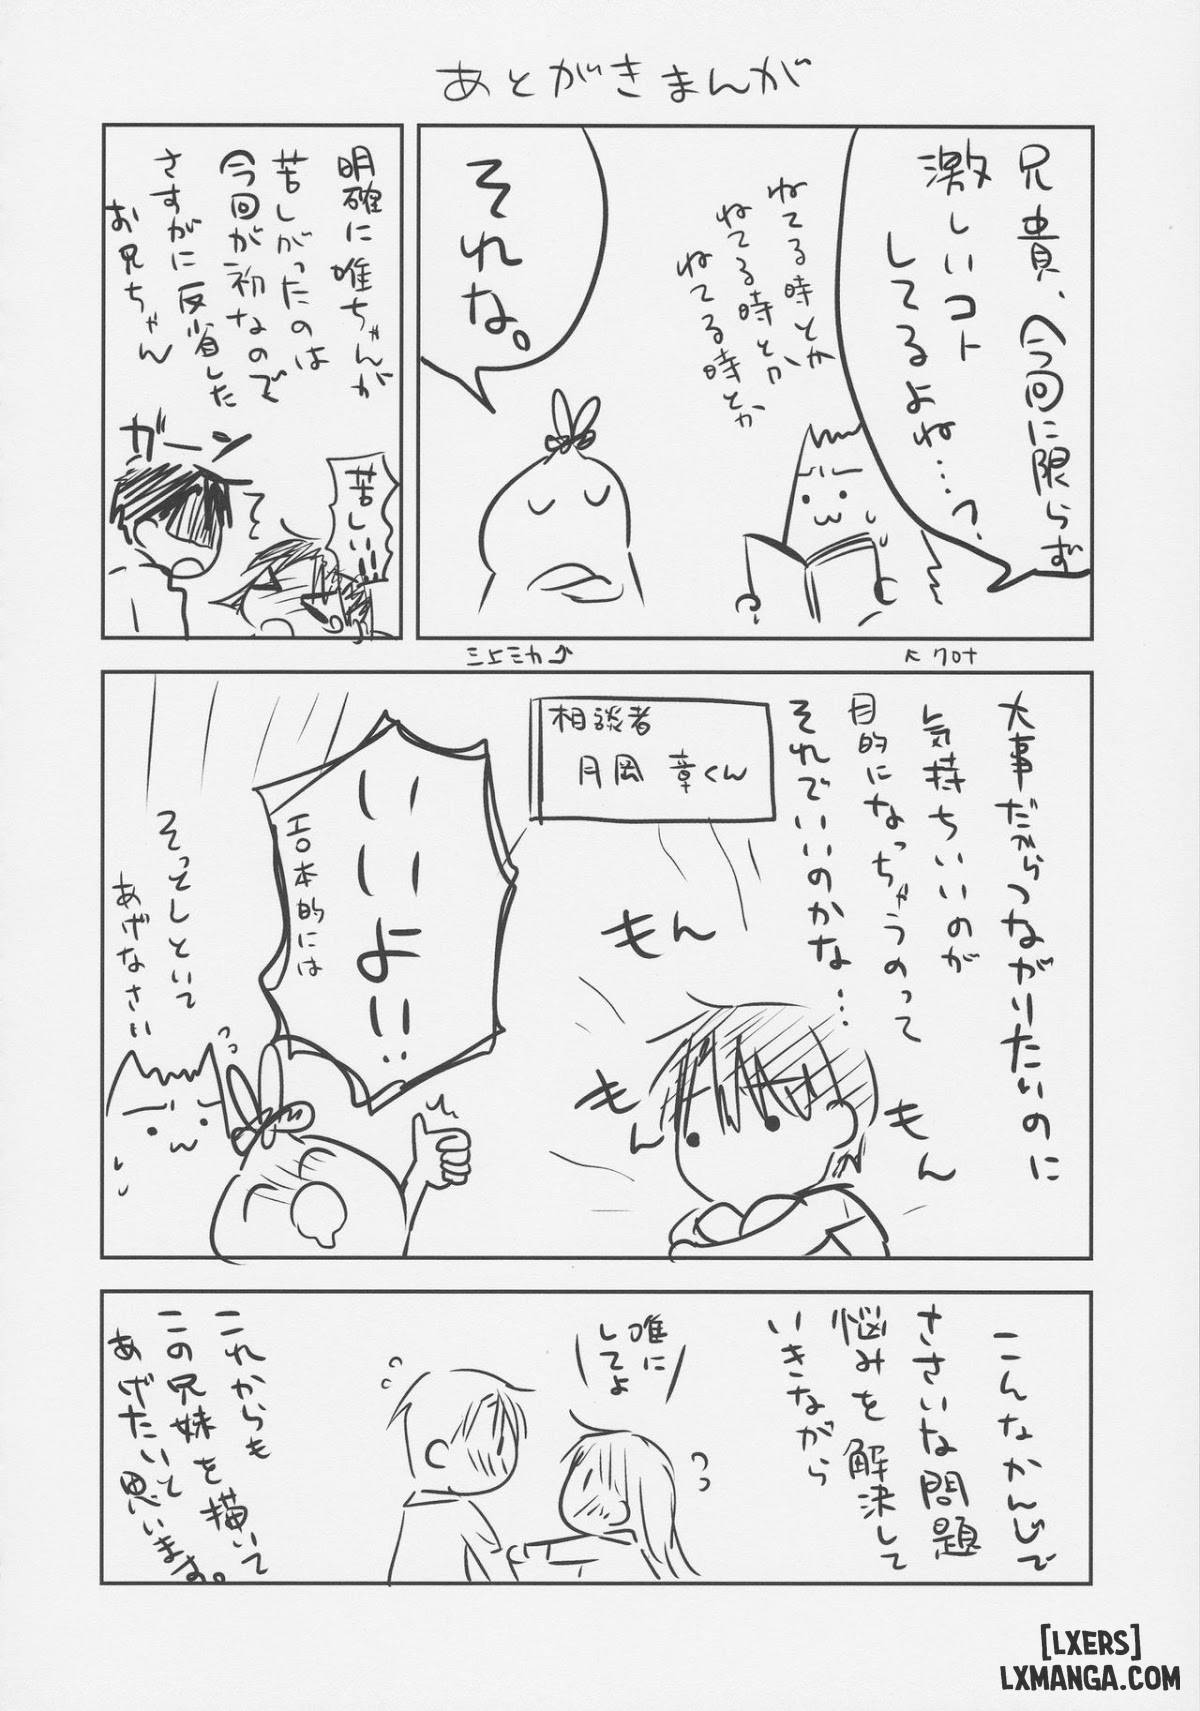 あとがきまんが
兄貴、今回に限らず
激しいコト
してるよね…?
ねてる時とか
ねてる時とか
ねてる時とか
それな。
明確に唯ちゃんが
苦しがったのは
今回が初なので
さすがに反省した
お兄ちゃん
ガーン
苦しい!!
クロナ
大事だからつながりたいのに
気持ちいいのが
目的になっちゃうのって
それでいいのかな…
相談者
月岡 章くん
もん
もん
もん
いいよ!!
エロ本的には
そっとしといて
あげなさい
こんなかんじで
ささいな問題
悩みを解決して
いきながら
唯に
してよ
これからも
この兄妹を描いて
あげたいて
思います。
[LXERS]
LXMANGA.COM